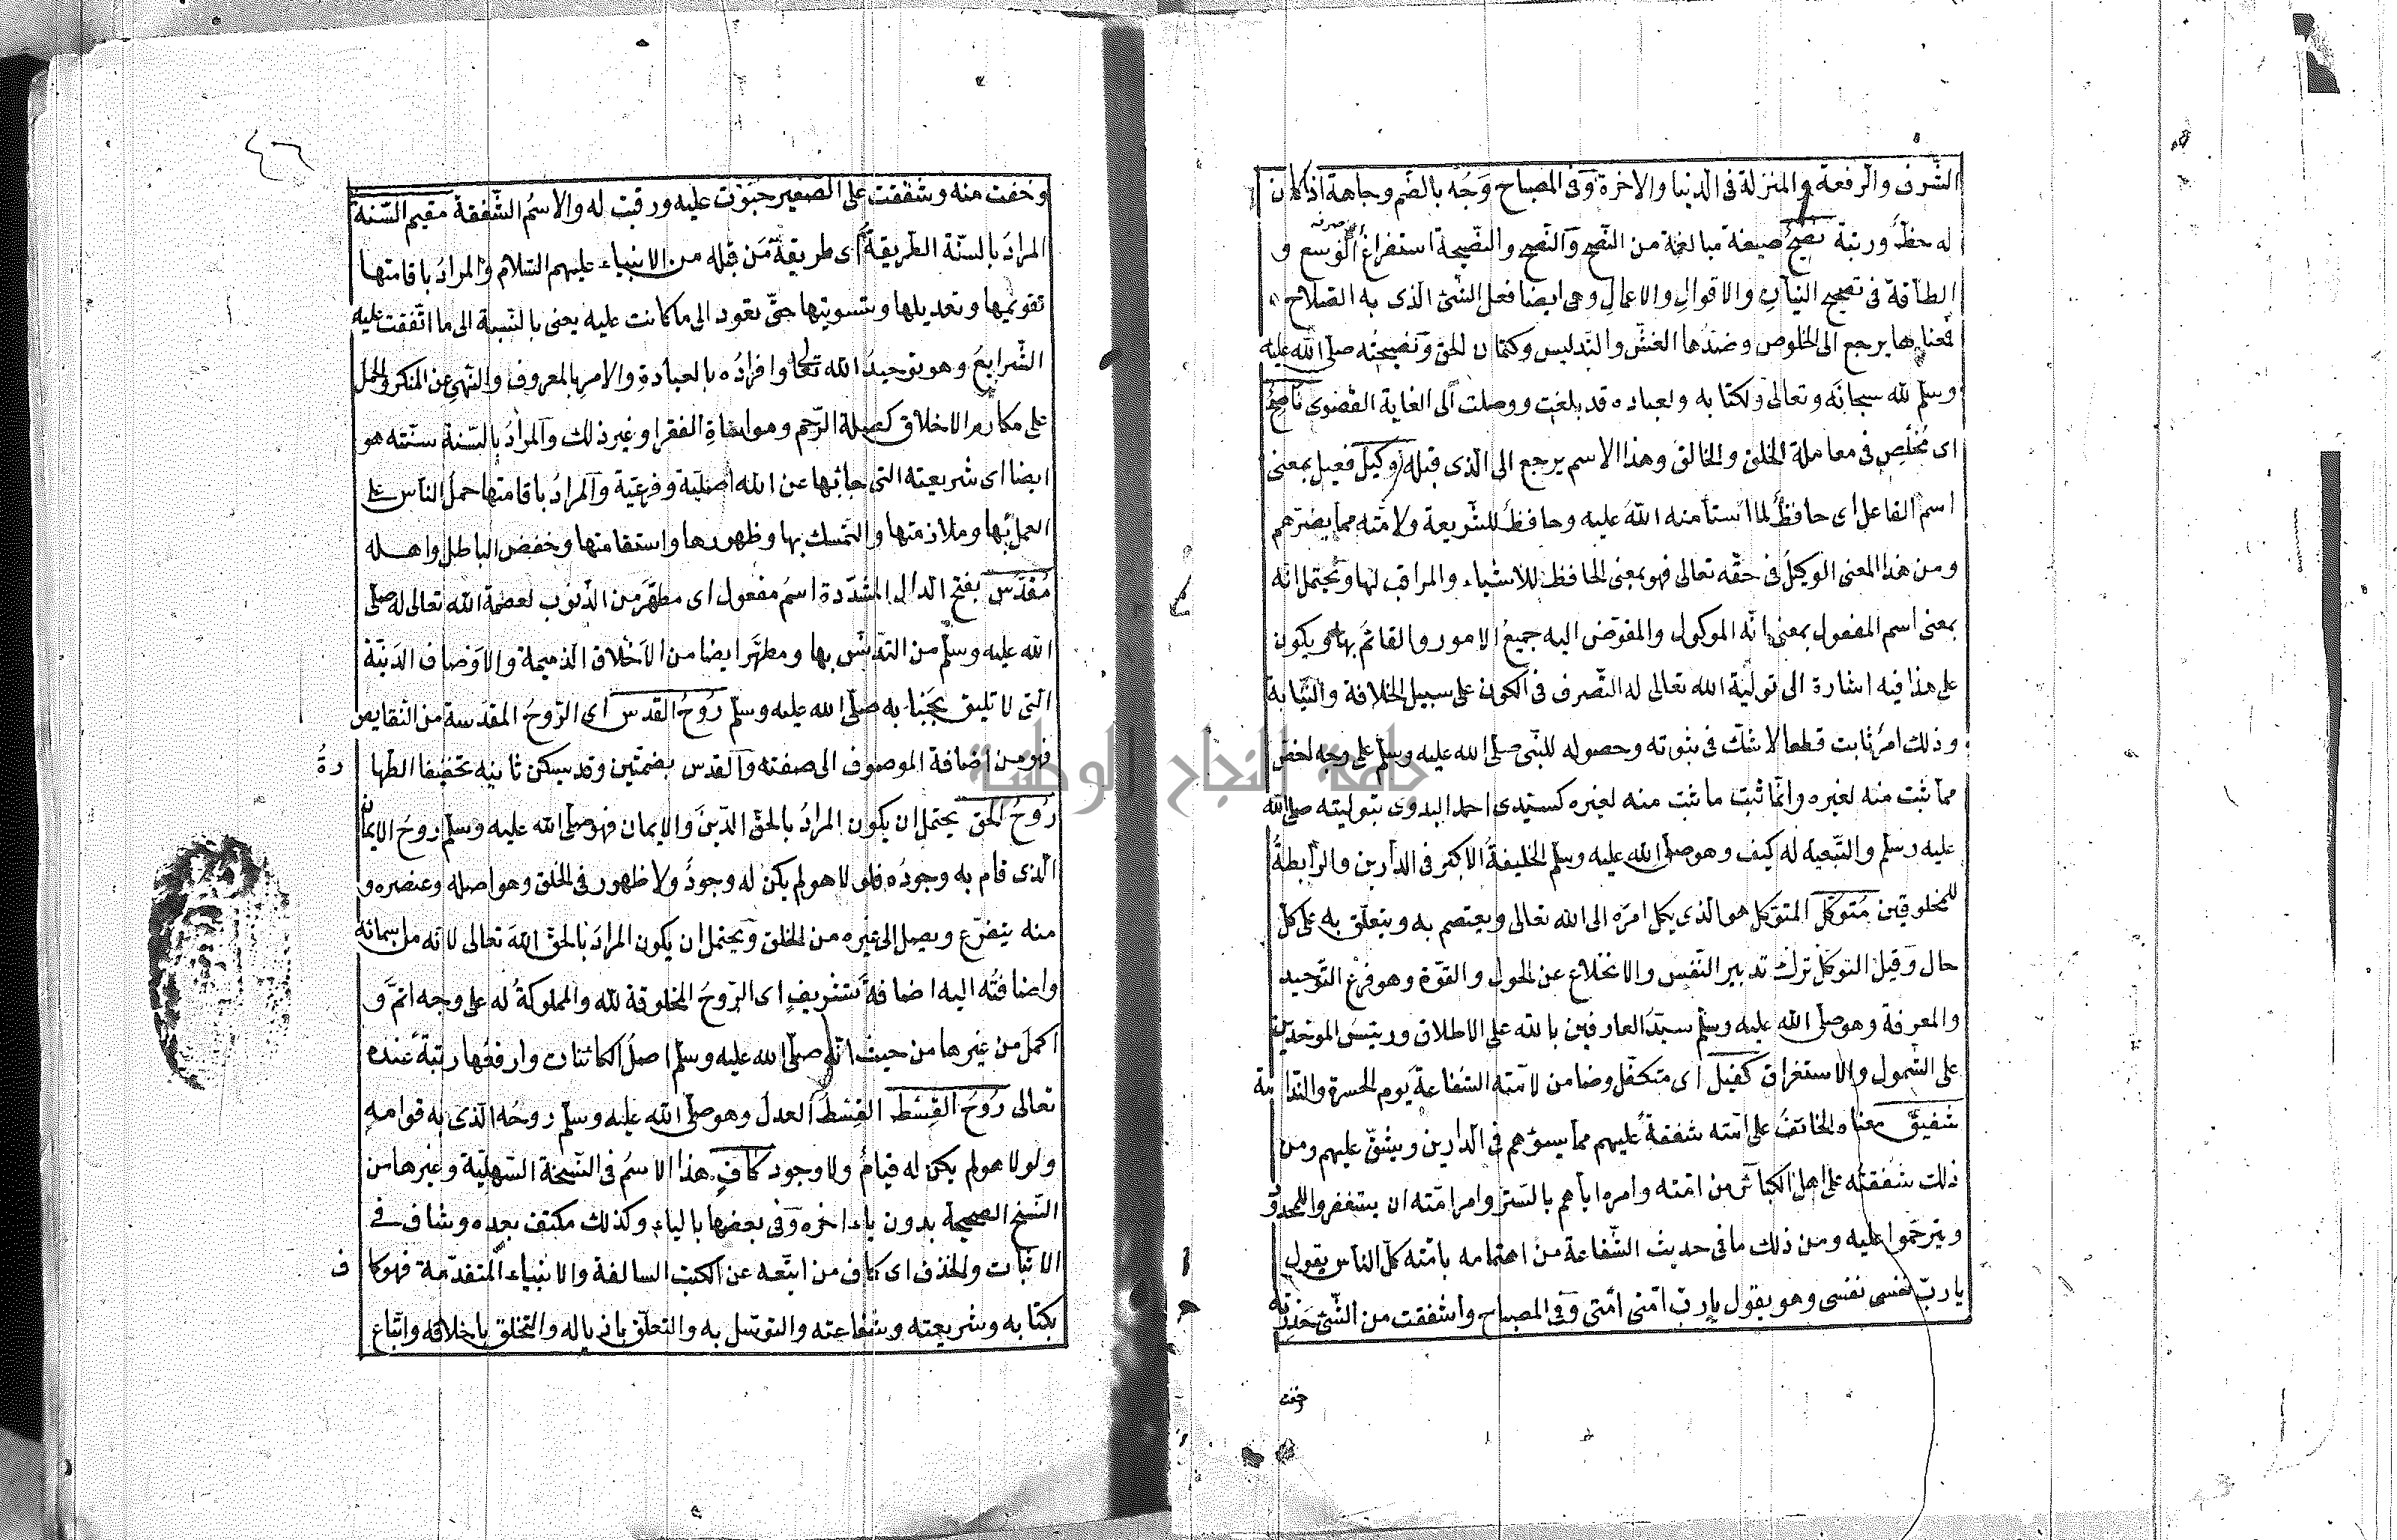 الشّرف والرفعة والمنزلة فى الدنيا والاخرة وفى المصباح وَجُه بالضم وجاهة اذا كان
له حظّ ورتبة نصيح صيغة مبالغة من النّصح والنّصح والنّصيحة استفراغ الوسع و
الطاقة فى تصحيح النيات والاقوال والاعمال وهى ايضا فعل الشئ الذى به الصلاح
فمعناها يرجع الى الخلوص وضدّها الغشّ والتدليس وكتمان الحق ونصيحته صلى الله عليه
وسلم لله سبحانه وتعالى ولكتابه ولعباده قد بلغت ووصلت الى الغاية القصوى ناصح
اى مُخْلِص فى معاملة الخلق والخالق وهذا الاسم يرجع الى الذى قبله وكيل فعيل بمعنى
اسم الفاعل اى حافظ لما استأمنه الله عليه وحافظ للشريعة ولامّته مما يضرّهم
ومن هذا المعنى الوكيل فى حقّه تعالى فهو بمعنى الحافظ للاشياء والمراقب لها ويحتمل انّه
بمعنى اسم المفعول بمعنى انّه الموكول والمفوّض اليه جميع الامور والقائم بها ويكون
على هذا فيه اشارة الى تولية الله تعالى له التّصرف فى الكون على سبيل الخلافة والنّيابة
وذلك امرٌ ثابت قطعا لا شكّ فى ثبوته وحصوله للنّبى صلى الله عليه وسلم على وجه اخصّ
مما ثبت منه لغيره وانّما ثبت ما ثبت منه لغيره كسيّدى احمد البدوى بتوليته صلى الله
عليه وسلم والتّبعية له كيف وهو صلى الله عليه وسلم الخليفة الاكبر فى الدارين والرابطة
للمخلوقين متوكّل المتوكل هو الذى يكل امره الى الله تعالى ويعتصم به ويتعلّق به على كلّ
حال وقيل التوكل ترك تدبير النّفس والانخلاع عن الحول والقوّة وهو فرع التّوحيد
والمعرفة وهو صلى الله عليه وسلم سيّد العارفين بالله على الاطلاق ورئيس الموحّدين
على الشمول والاستغراق كفيل اى متكفّل وضامن لامّته الشفاعة يوم الحسرة والنّدامة
شفيق معناه الخائف على امّته شفقةً عليهم مما يسؤهم فى الدارين ويشقّ عليهم ومن
ذلك شفقته على اهل الكبائر من امّته وامره اياهم بالستر وامر امّته ان يستغفروا للمحدود
ويترحّموا عليه ومن ذلك ما فى حديث الشّفاعة من اهتمامه بامّته كلّ الناس يقول
يا ربّ نفسى نفسى وهو يقول يا ربّ امّتى امّتى وفى المصباح واشفقت من الشّئ حذرته
وخفت
٤٦
وخفت منه وشفقت على الصّغير حنوت عليه ورقبت له والاسم الشّفقة مقيم السّنة
المراد بالسنّة الطريقة اى طريقة من قبله من الانبياء عليهم السّلام والمراد باقامتها
تقويمها وتعديلها وتسويتها حتّى تعود الى ما كانت عليه يعنى بالنّسبة الى ما اتّفقت عليه
الشّرايع وهو توحيد الله تعالى وافراده بالعبادة والامر بالمعروف والنّهى عن المنكر والحمل
على مكارم الاخلاق كصلة الرّحم ومواساة الفقرا وغير ذلك والمراد بالسّنة سنّته هو
ايضا اى شريعته التى جاء بها عن الله اصليّة وفرعيّة والمراد باقامتها حمل الناس على
العمل بها وملازمتها والتمسك بها وظهورها واستقامتها وخفض الباطل واهله
مُقَدّس بفتح الدال المشدّدة اسم مفعول اى مطهّر من الذّنوب لعصمة الله تعالى له صلى
الله عليه وسلم من التدنّس بها ومطهّر ايضا من الاخلاق الذميمة والاوصاف الدّنيّة
التى لا تليق بجنابه صلى الله عليه وسلم رُوحُ القدس اى الرّوح المقدّسة من النّقايص
فهو من اضافة الموصوف الى صفته والقدس بضمّتين وقد يسكن ثانيه تخفيفا الطهارة
رُوحُ الحق يحتمل ان يكون المراد بالحقّ الدّين والايمان فهو صلى الله عليه وسلم روح الايمان
الذى قام به وجوده فلولا هو لم يكن له وجود ولا ظهور فى الخلق وهو اصله وعنصره و
منه يتفرّع ويصل الى غيره من الخلق ويحتمل ان يكون المراد بالحقّ الله تعالى لانّه من اسمائه
واضافته اليه اضافة تشريف اى الرّوح المخلوقة لله والمملوكة له على وجه اتمّ و
اكمل من غيرها من حيث انّه صلى الله عليه وسلم اصل الكائنات وارفعها رتبة عنده
تعالى رُوحُ القِسْط القسط العدل وهو صلى الله عليه وسلم روحه الذى به قوامه
ولولا هو لم يكن له قيام ولا وجود كاف هذا الاسم فى النّسخة السّهليّة وغيرها من
النّسخ الصحيحة بدون ياء اخره وفى بعضها بالياء وكذلك مكتف بعده وشاف فى
الاثبات والحذف اى كاف من اتّبعه عن الكتب السالفة والانبياء المتقدّمة فهو كاف
بكتابه وشريعته وشفاعته والتوسّل به والتعلّق باذياله والتخلق باخلاقه واتّباع
جامعة النجاح الوطنية